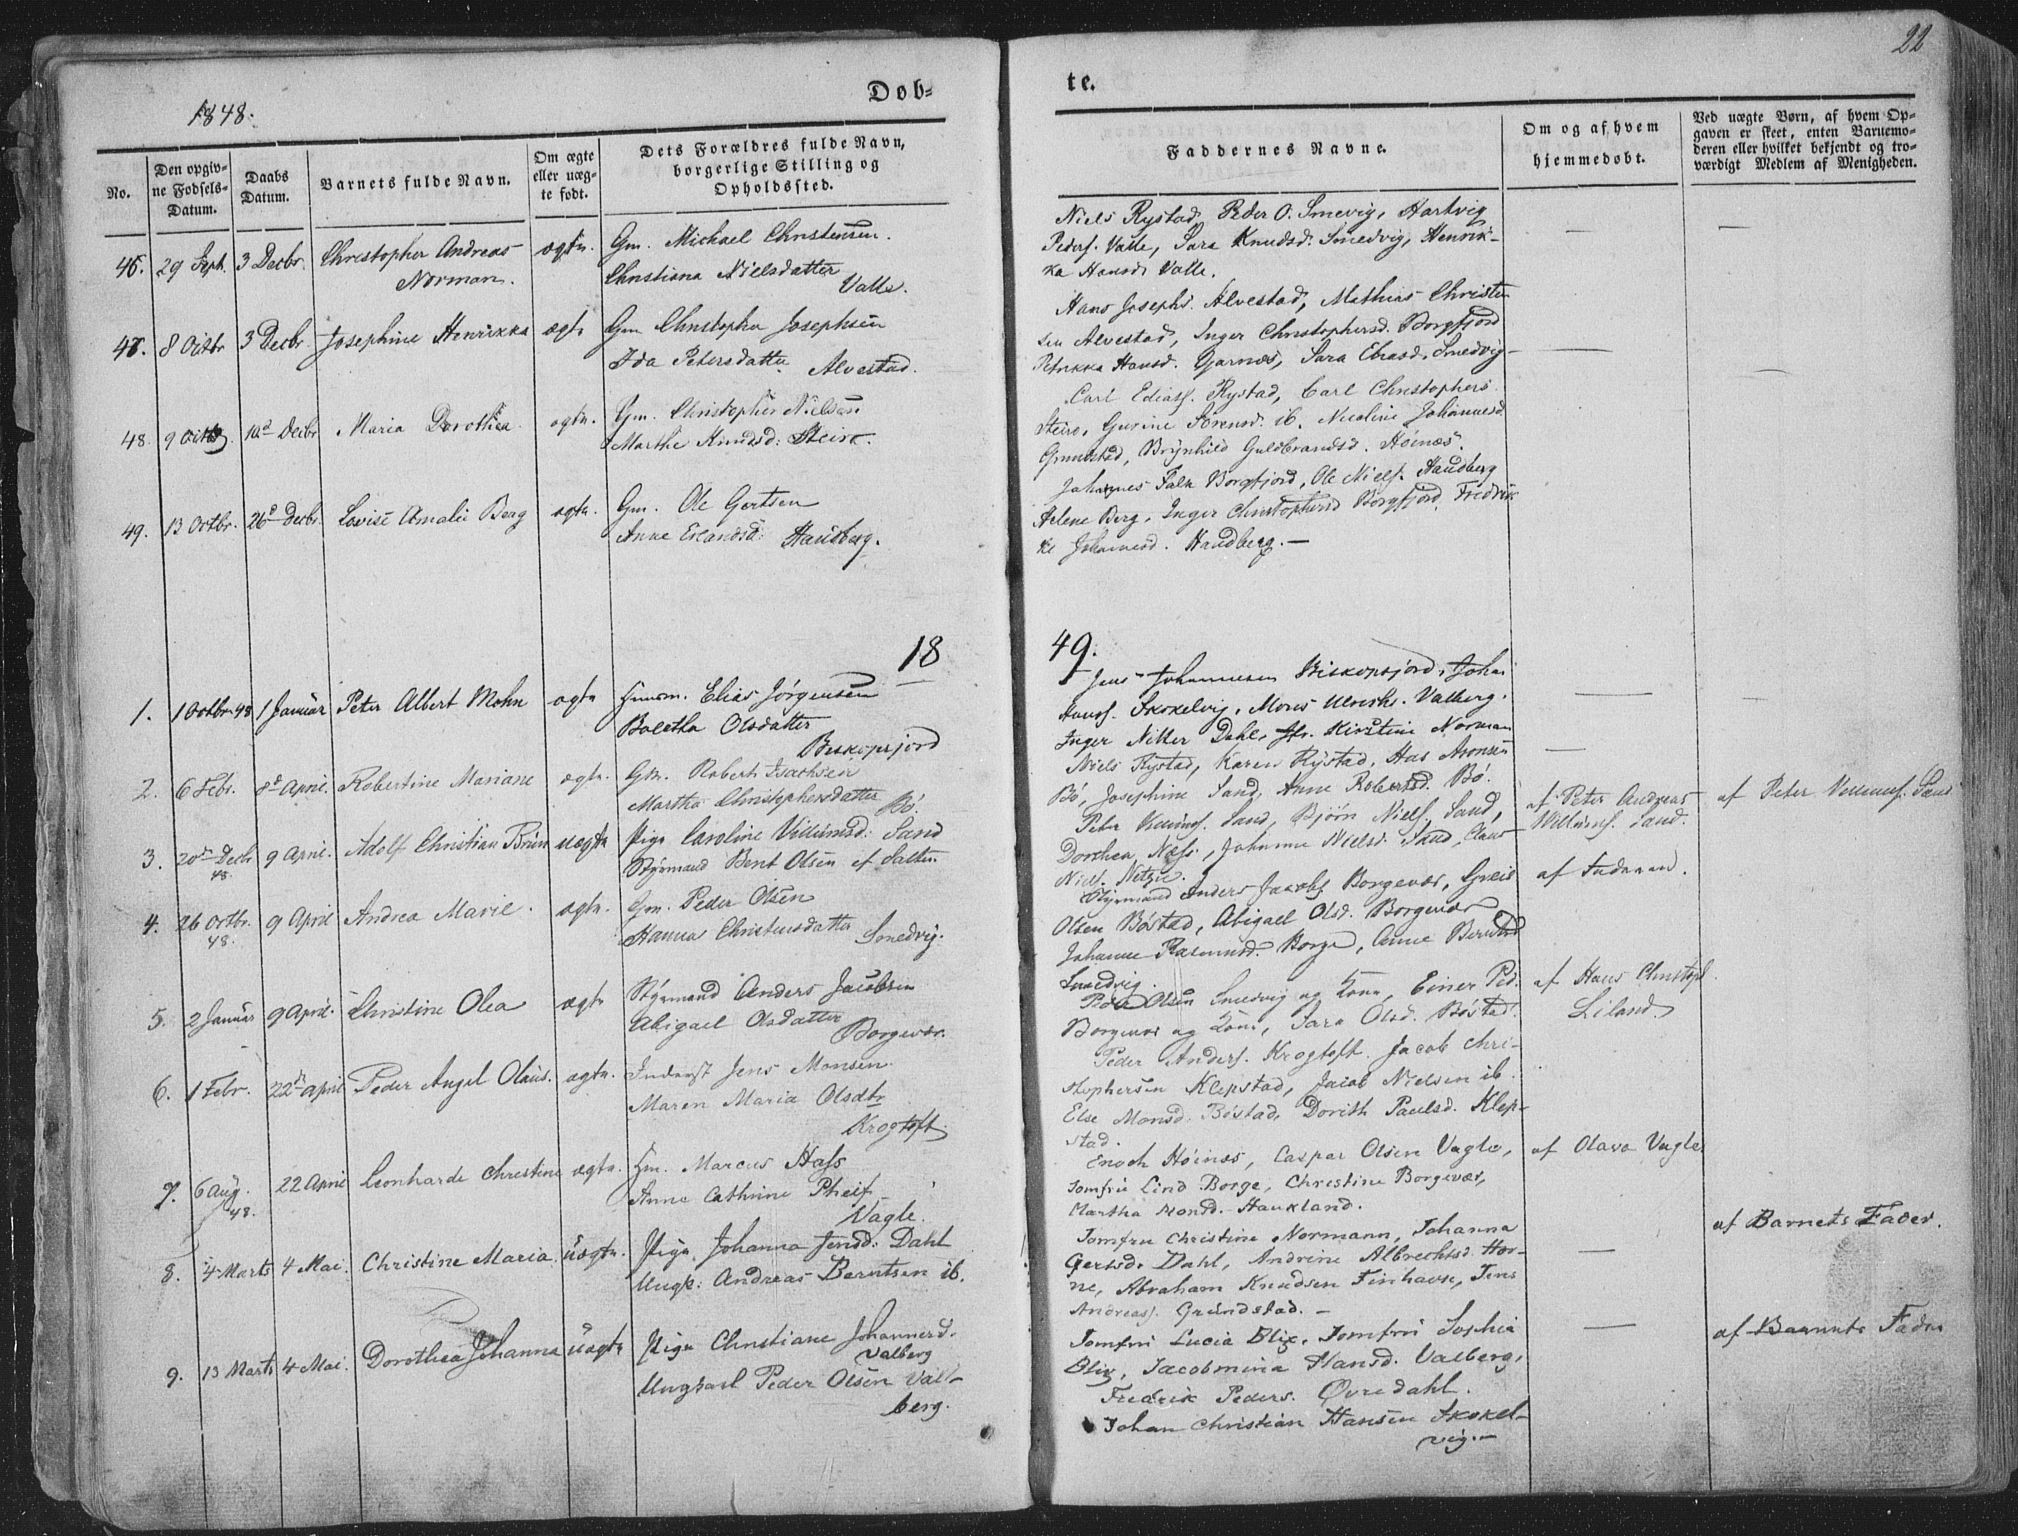 22
1848.
Døb-
te.
No.
Den opgiv-
ne Fødsels-
Datum.
Daabs
Datum.
Barnets fulde Navn.
Om ægte
eller uæg-
te født.
Dets Forældres fulde Navn,
borgerlige Stilling og
Opholdssted.
Faddernes Navne.
Om og af hvem
hjemmedøbt.
Ved uægte Børn, af hvem Op-
gaven er skeet, enten Barnemo-
deren eller hvilket bekjendt og tro-
værdigt Medlem af Menigheden.
46. 29 Sept. 3 Decbr. Christopher Andreas ægte. Gm. Michael Christensen.
Norman. Christiana Nielsdatter
Valle.
Niels Rystad, Peder O. Smevig, Hartvig
Peders. Valle, Sara Knudsd. Smedvig, Henrik-
ka Hansd. Valle.
47. 8 Octbr 3 Decbr. Josephine Henrikka ægte Gm. Christopher Josephsen
Ida Petersdatter. Alvestad.
Hans Josephs. Alvestad, Mathias Christen
sen Alvestad, Inger Christophersd. Borgfjord
Petrikka Hansd. Gjarnæs, Sara Eliasd. Smedvig
48. 9 Octb 10d Decbr Maria Dorothea. ægte. Gm. Christopher Nielsen
Marthe Knudsd: Steiro.
Carl Ediass. Rystad, Carl Christophers
Steiro, Gurine Sørensd. ib. Nicoline Johannesd
Grundstad, Brynhild Guldbrandsd. Høinæs.
49. 13 Octbr. 26d Decbr. Lovise Amalie Berg ægte. Gm. Ole Gertsen
Anne Erlandsd: Haudberg.
Johannes Falk Borgfjord, Ole Niels. Haudberg
Helene Berg, Inger Christophersd Borgfjord, Fredrik
ke Johannesd. Haudberg. —
18
49.
1. 1 Octbr 48 1 Januar Peter Albert Mohn ægte Huusm. Elias Jørgensen
Boletha Olsdatter
Biskopsjord
Jens Johannesen Biskopsjord, Johan
Hanss. Skokelvig, Mons Ulriks. Valberg.
Inger Nitter Dahl, Jfr. Kirstine Norman
2. 6 Febr. 8d April. Robertine Mariane ægte. Gm. Robert Isachsen
Martha Christophersdatter Bø.
Niels Rystad, Karen Rystad, Has Aronsen
Bø, Josephine Sand, Anne Robertsd. Bø.
3. 20de Decbr 48 9 April. Adolf Christian Brün uægte Pige Caroline Villumsd: Sand
Styrmand Bent Olsen af Salten
Peter Villums. Sand, Bjørn Niels. Sand,
Dorthea Næss, Johanne Nielsd. Sand, Claus
Niels. Netzin.
af Peter Andreas
Willums. Sand.
af Peter Villums. Sand
4. 26 Octbr. 48. 9 April Andrea Marie. ægte. Gm. Peder Olsen
Hanna Christensdatter Smedvig.
Styrmand Anders Jacobs Borgevær, Greis
Olsen Bøstad, Abigael Olsd. Borgevær
Johanne Rasmusd. Borge, Anne Berntsd
Smedvig.
af Faderen.
5. 2 Januar 9 April. Christine Olea ægte Styrmand Anders Jacobsen
Abigael Olsdatter
Borgevær.
Peder Olsen Smedvig og Kone, Einer Ped.
Borgevær og Kone, Sara Olsd. Bøstad.
af Hans Christoph.
Liland.
6. 1 Febr. 22de April Peder Angel Olaus. ægte. Inderst Jens Monsen
Maren Maria Olsdtr
Krogtoft.
Peder Anders. Krogtoft. Jacob Chri-
stophersen Klepstad, Jacob Nielsen ib.
Else Monsd. Bøstad, Dorith Paulsd. Klep-
stad.
7. 6 Aug. 48. 22 April Leonharde Christine ægte. Hm. Marcus Hass
Anne Cathrine Pheif
Vagle.
Enoch Høinæs, Caspar Olsen Vagle,
Jomfru Lind Borge, Christine Borgevær,
Martha Monsd. Haukland.
af Olava Vagle
8. 4 Marts 4 Mai. Christine Maria. uægte. Pige Johanna Jensd: Dahl
Ungk: Andreas Berntsen ib.
Jomfru Christine Normann, Johanna
Gertsd. Dahl, Andrine Albrechtsd. Hor-
ne, Abraham Knudsen Finhavn, Jens
Andreass. Grundstad. —
af Barnets Fader.
9. 13 Marts 4 Mai. Dorothea Johanna uægte Pige Christiane Johannesd.
Valberg
Ungkarl Peder Olsen Val-
berg.
Jomfru Lucia Blix, Jomfru Sophia
Blix, Jacobmina Hansd. Valberg,
Fredrik Peders. Øvredahl.
Johan Christian Hansen Skokel-
vig. —
af Barnets Fader